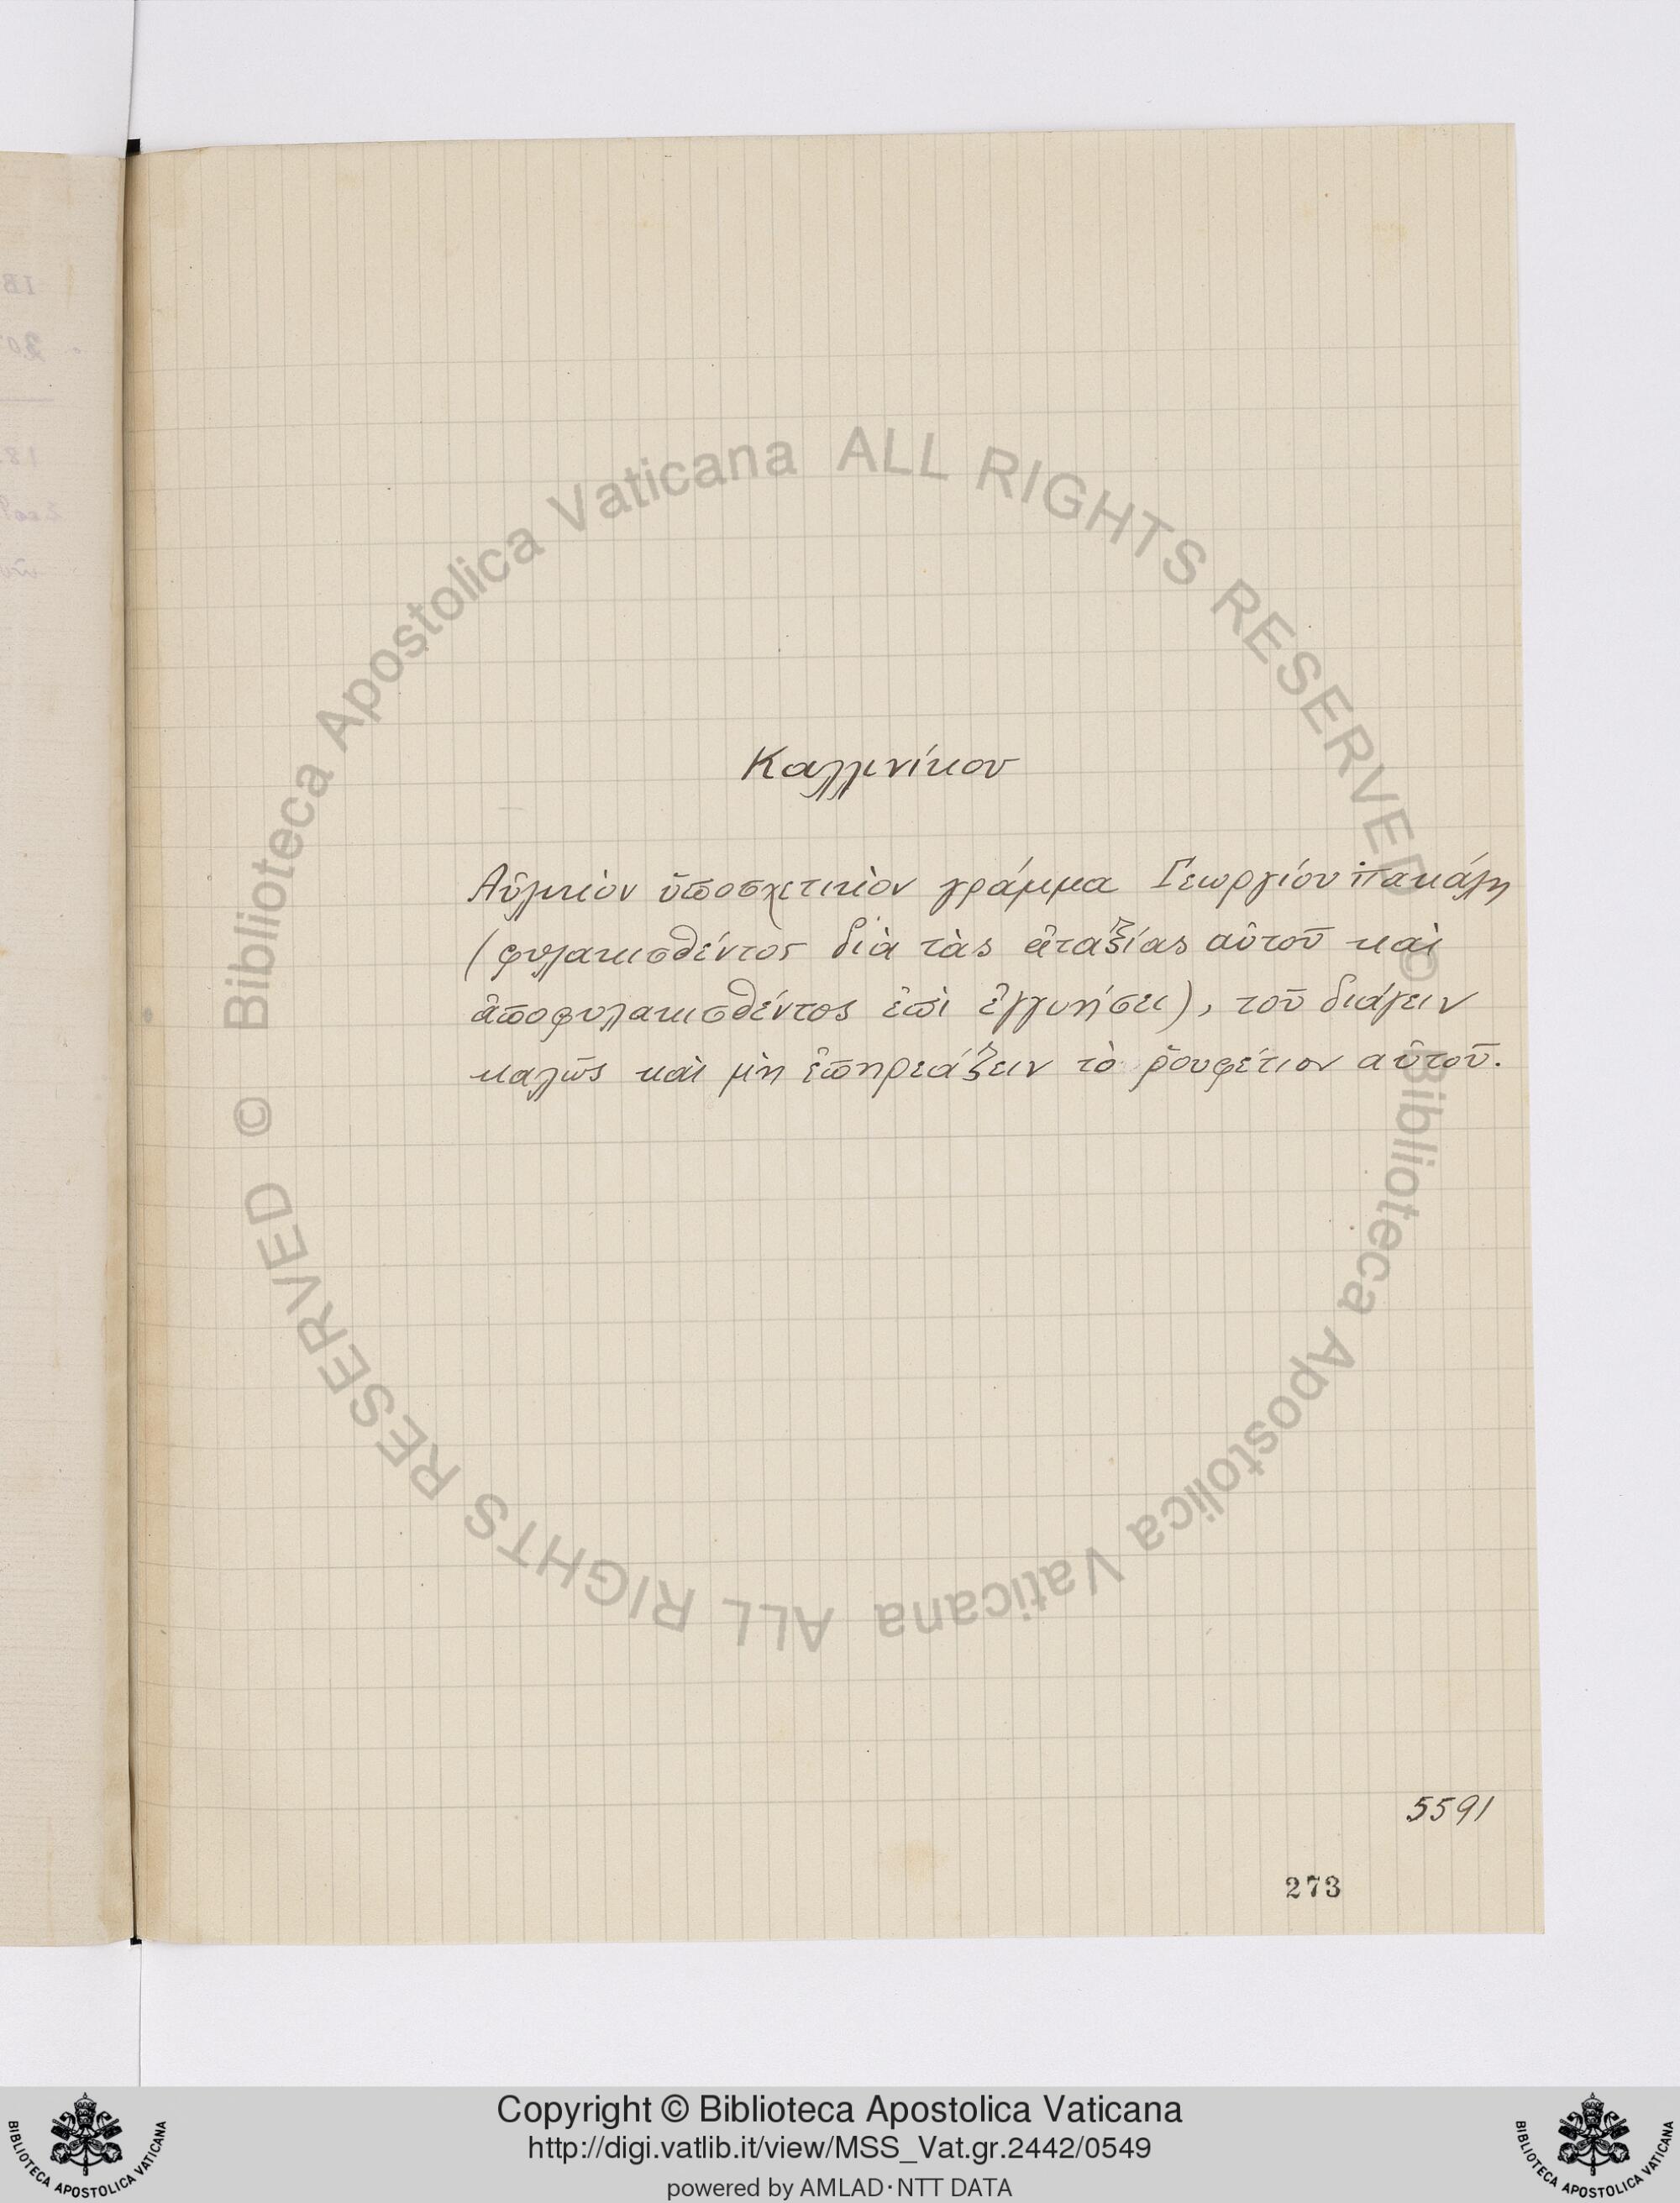 Καλλινίκου
Αὐλικὸν ὑποσχετικὸν γράμμα Γεωργίου Πακάλη
(φυλακισθέντος διὰ τὰς ἀταξίας αὐτοῦ καὶ
ἀποφυλακισθέντος ἐπὶ ἐγγυήσει), τοῦ διάγειν
καλῶς καὶ μὴ ἐπηρεάζειν τὸ ῥουφέτιον αὐτοῦ.
5591
273
© Biblioteca Apostolica Vaticana ALL RIGHTS RESERVED
© Biblioteca Apostolica Vaticana ALL RIGHTS RESERVED
Copyright © Biblioteca Apostolica Vaticana
http://digi.vatlib.it/view/MSS_Vat.gr.2442/0549
powered by AMLAD·NTT DATA
BIBLIOTECA APOSTOLICA VATICANA
BIBLIOTECA APOSTOLICA VATICANA